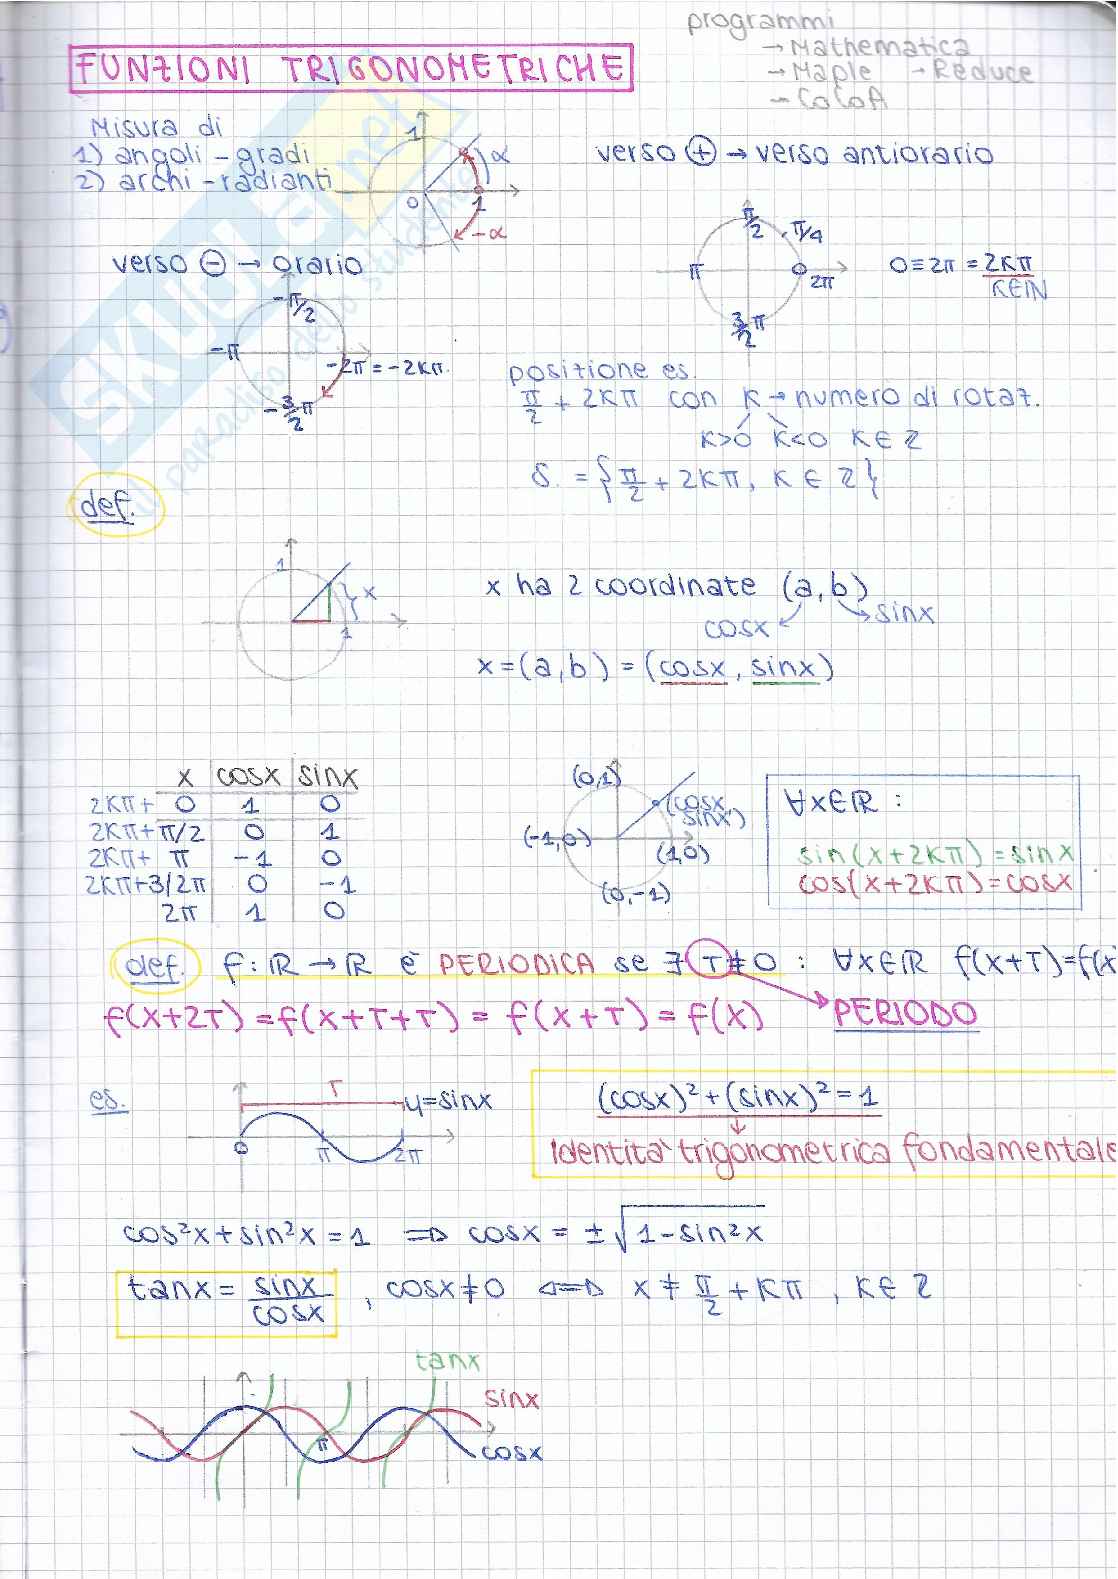 programmi
→ Mathematica
→ Maple → Reduce
→ CoCoA
FUNZIONI TRIGONOMETRICHE
Misura di
1) angoli - gradi
2) archi - radianti
1
α
0
1
-α
verso ⊕ → verso antiorario
π/2
π/4
π
2π
3/2 π
0 ≡ 2π = 2kπ
k∈IN
verso ⊖ → orario
-π/2
-π
-2π = -2kπ
-3/2 π
posizione es.
π/2 + 2kπ con k → numero di rotaz.
k>0 k<0 k∈Z
S. = {π/2 + 2kπ, k ∈ Z}
def.
1
x
1
x ha 2 coordinate (a,b)
cosx
sinx
x=(a,b) = (cosx, sinx)
x cosx sinx
2kπ+ 0 1 0
2kπ+π/2 0 1
2kπ+ π -1 0
2kπ+3/2π 0 -1
2π 1 0
(0,1)
(cosx, sinx)
(-1,0)
(1,0)
(0,-1)
∀x∈IR :
sin(x+2kπ)=sinx
cos(x+2kπ)=cosx
def. f: IR → IR è PERIODICA se ∃ T≠0 : ∀x∈IR f(x+T)=f(x
f(x+2T) = f(x+T+T) = f(x+T) = f(x) PERIODO
es.
T
y=sinx
0
π
2π
(cosx)²+(sinx)²=1
Identità trigonometrica fondamentale
cos²x+sin²x=1 ⇒ cosx = ±√1-sin²x
tanx = sinx/cosx , cosx≠0 ⇔ x ≠ π/2 + kπ , k∈Z
tanx
sinx
π
cosx
SKUOLA.net
il paradiso dello studente